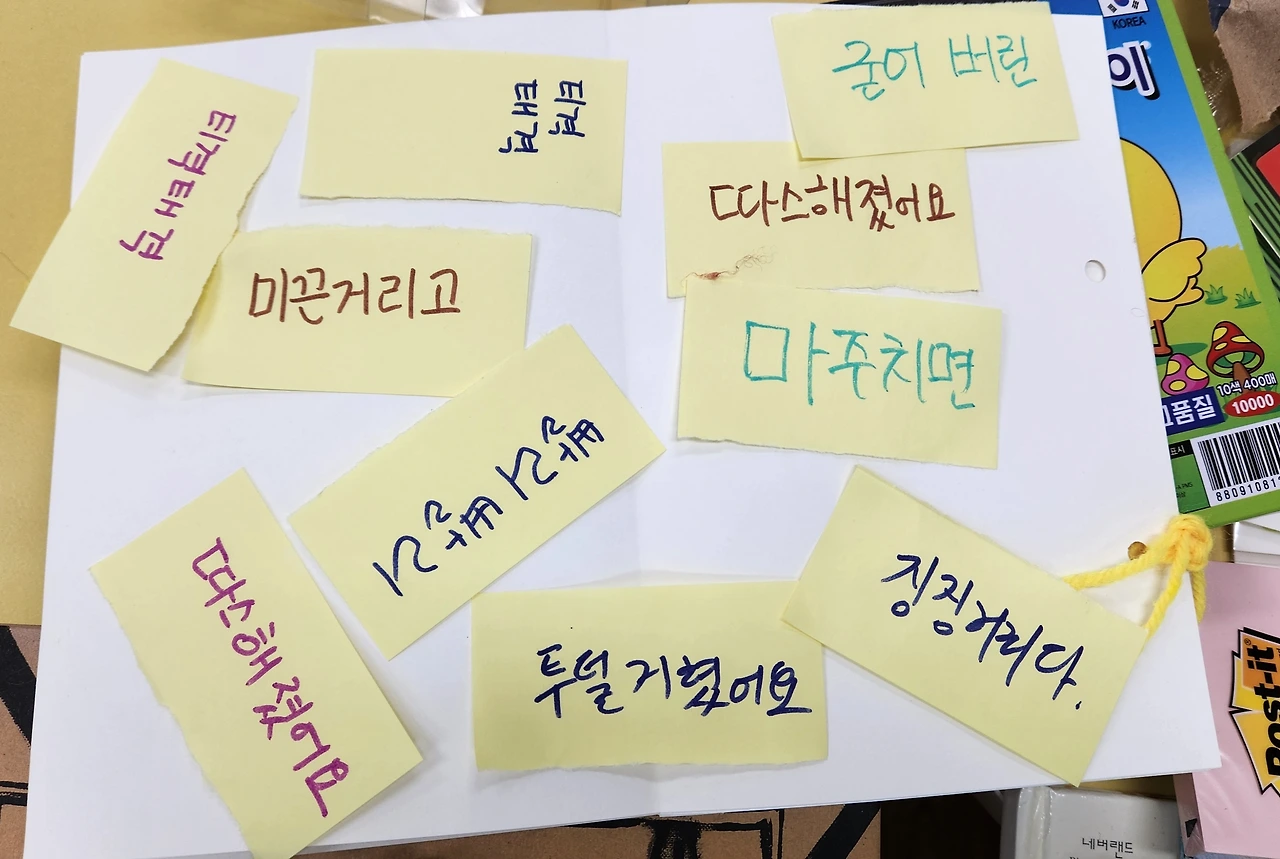 티격태격
티격
태격
굳어 버린
따스해졌어요
미끈거리고
마주치면
따스해졌어요
투덜거렸어요
징징거리다.
KOREA
이
10색 400매
품질
10000
Post-it
네버랜드